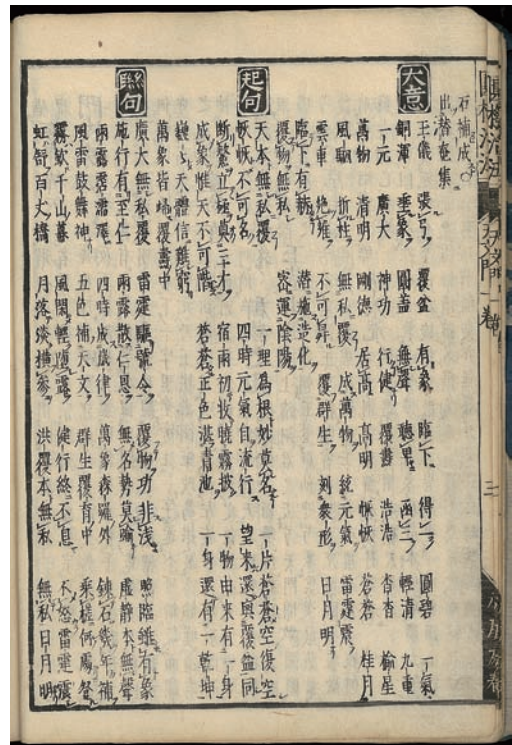 石補成
出潛庵集
大意
王儀 張弓 覆盆 有象 臨下 得一 圓碧 一氣
銅渾 垂象 圓盖 無聲 聽卑 函三 輕清 九重
一元 廣大 神功 行健 覆燾 浩浩 杳杳 榆星
萬物 清明 剛德 居高 高明 蒼蒼 桂月
風驅 折柱 無私覆 成萬物 統元氣 雷霆震
雲車 絶維 不可昇 覆群生 刻衆形 日月明
臨下有赫 潜施造化
覆物無私 密運陰陽
起句
天本無私覆 一理爲根妙莫名 一片蒼蒼空復空
不可名 四時元氣自流行 望來還與覆盆同
斷鰲立極奠三才 宿雨初收曉霧披 一物由來有一身
成象惟天不可階 蒼蒼正色湛青池 一身還有一乾坤
巍巍天體信難窮
萬象皆歸覆燾中
聯句
廣大無私覆 雷霆驅號令 覆物功非淺 照臨雖有象
施行有至仁 雨露散仁恩 無名勢莫踰 虚靜本無聲
雨露霑濡澤 四時成歲律 萬象森羅外 鍊石幾年補
風雷鼓舞神 五色補天文 群生覆育中 乘槎何處聲
霧歛千山暮 風閑輕墮露 健行終不息 不怒雷霆震
虹舒百丈橋 月落淡横參 洪覆本無私 無私日月明
圓機活法 天文門一卷
二